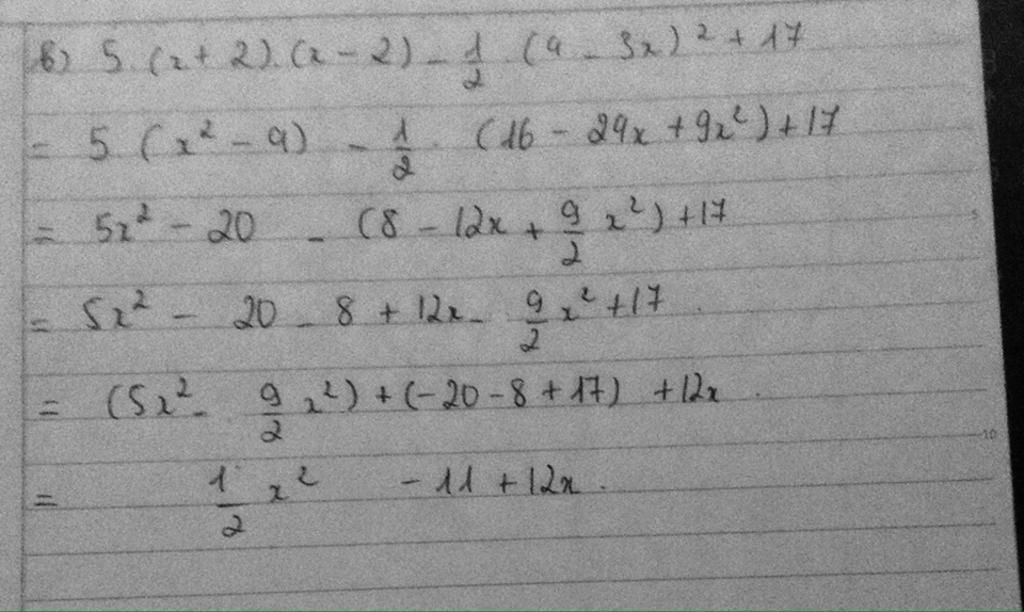 b) 5.(x+2).(x-2) - 1/2.(4-3x)² + 17
= 5.(x² - 4) - 1/2.(16 - 24x + 9x²) + 17
= 5x² - 20 - (8 - 12x + 9/2 x²) + 17
= 5x² - 20 - 8 + 12x - 9/2 x² + 17.
= (5x² - 9/2 x²) + (-20 - 8 + 17) + 12x.
= 1/2 x² - 11 + 12x.
5
10